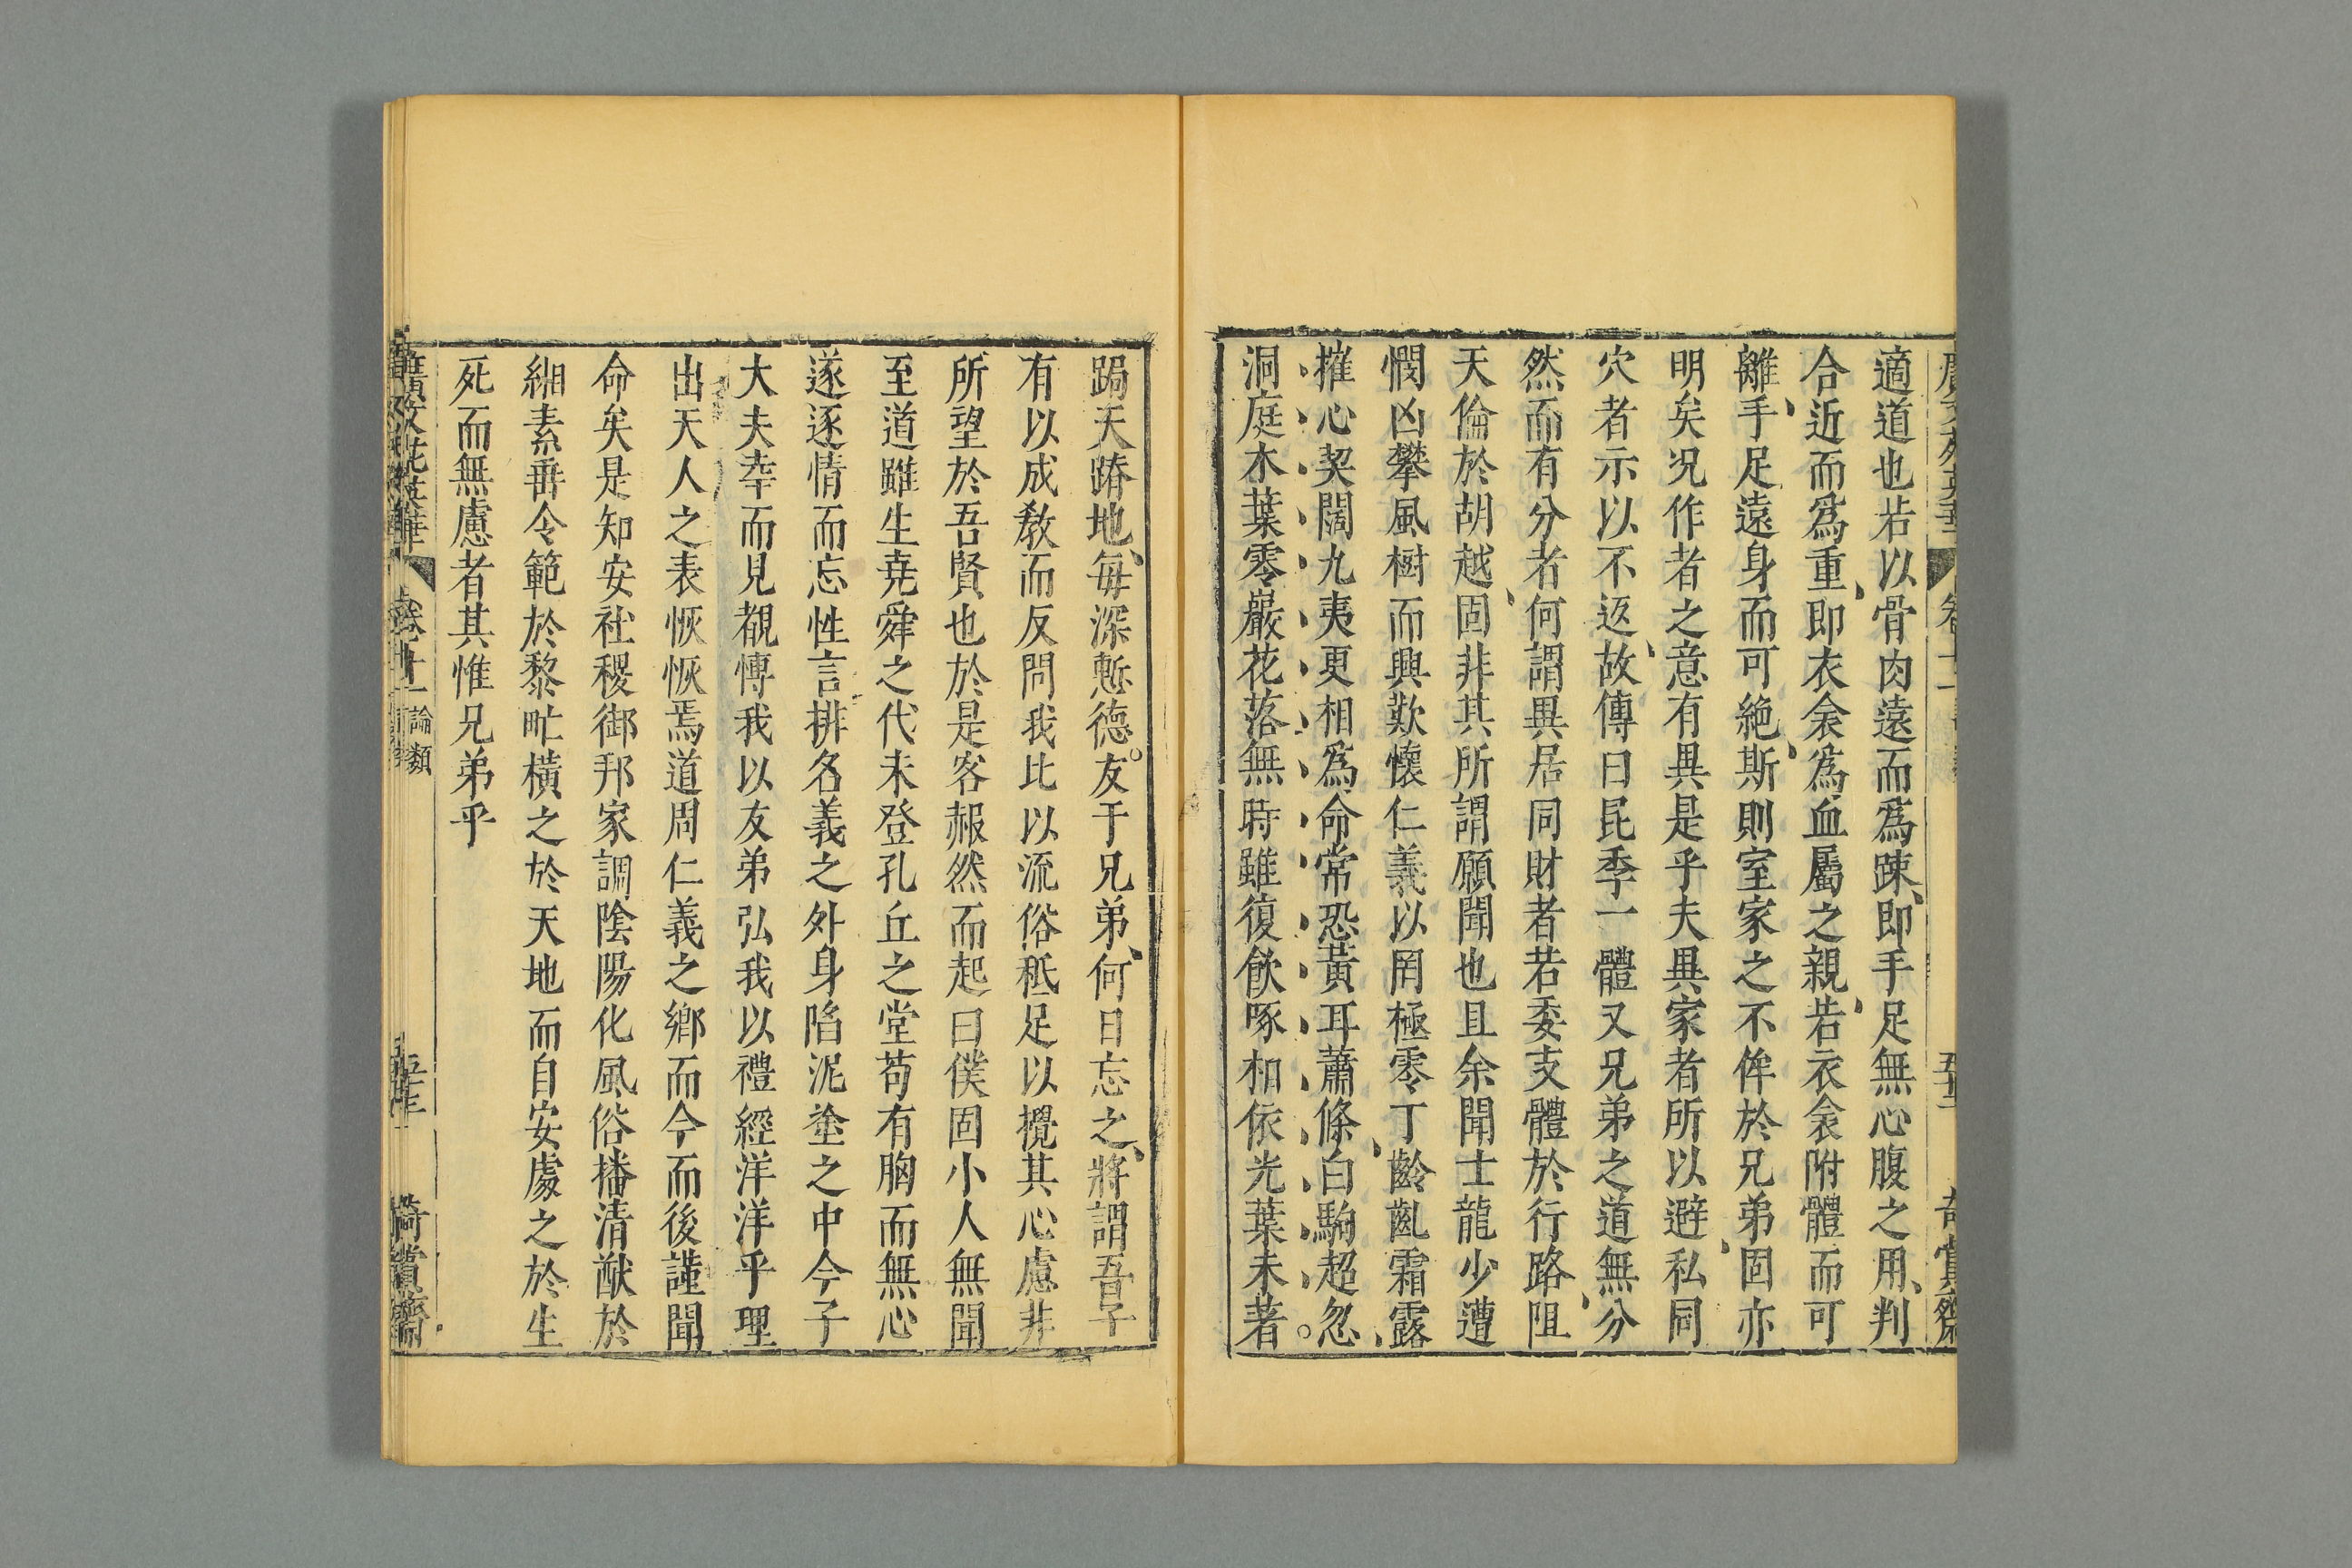 適道也若以骨肉遠而爲踈、即手足無心腹之用、判
合近而爲重、即衣衾爲血屬之親、若衣衾附體而可
離、手足遠身而可絶、斯則室家之不侔於兄弟固亦
明矣况作者之意有異是乎夫異家者所以避私、同
穴者示以不返、故傳曰昆季一體又兄弟之道無分
然而有分者何謂異居同財者若委支體於行路、阻
天倫於胡越、固非其所謂願聞也且余聞士龍少遭
憫凶攀風樹而興歎懷仁義以罔極零丁、齠齔霜露、
摧心契闊九夷更相爲命常恐黃耳蕭條白駒超忽。
洞庭木葉零巖花落無時雖復飲啄相依光葉未著
跼天蹐地、每深慙德。友于兄弟、何日忘之、將謂吾子
有以成教而反問我比以流俗秪足以攪其心慮非
所望於吾賢也於是客赧然而起曰僕固小人無聞
至道雖生堯舜之代未登孔丘之堂苟有胸而無心
遂逐情而忘性言排名義之外身陷泥塗之中今子
大夫幸而見覩愽我以友弟弘我以禮經洋洋乎理
出天人之表恢恢焉道周仁義之鄉而今而後謹聞
命矣是知安社稷御邦家調陰陽化風俗播清猷於
緗素垂令範於黎甿橫之於天地而自安處之於生
死而無慮者其惟兄弟乎
論類